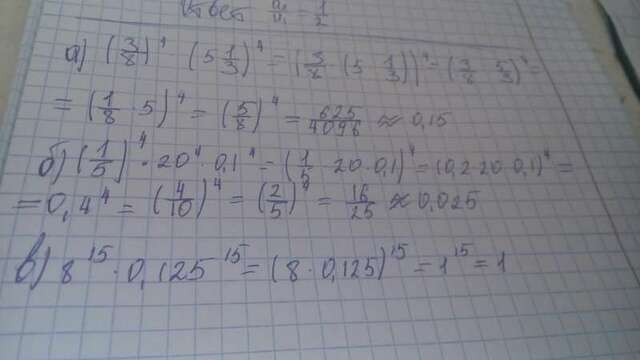 Ответ a₁/v₁ = 1/2
а) (3/8)⁴ · (5 1/3)⁴ = (3/8 · (5 1/3))⁴ = (3/8 · 5/3)⁴ =
= (1/8 · 5)⁴ = (5/8)⁴ = 625/4096 ≈ 0,15
б) (1/5)⁴ · 20⁴ · 0,1⁴ = (1/5 · 20 · 0,1)⁴ = (0,2 · 20 · 0,1)⁴ =
= 0,4⁴ = (4/10)⁴ = (2/5)⁴ = 16/25 ≈ 0,025
в) 8¹⁵ · 0,125¹⁵ = (8 · 0,125)¹⁵ = 1¹⁵ = 1